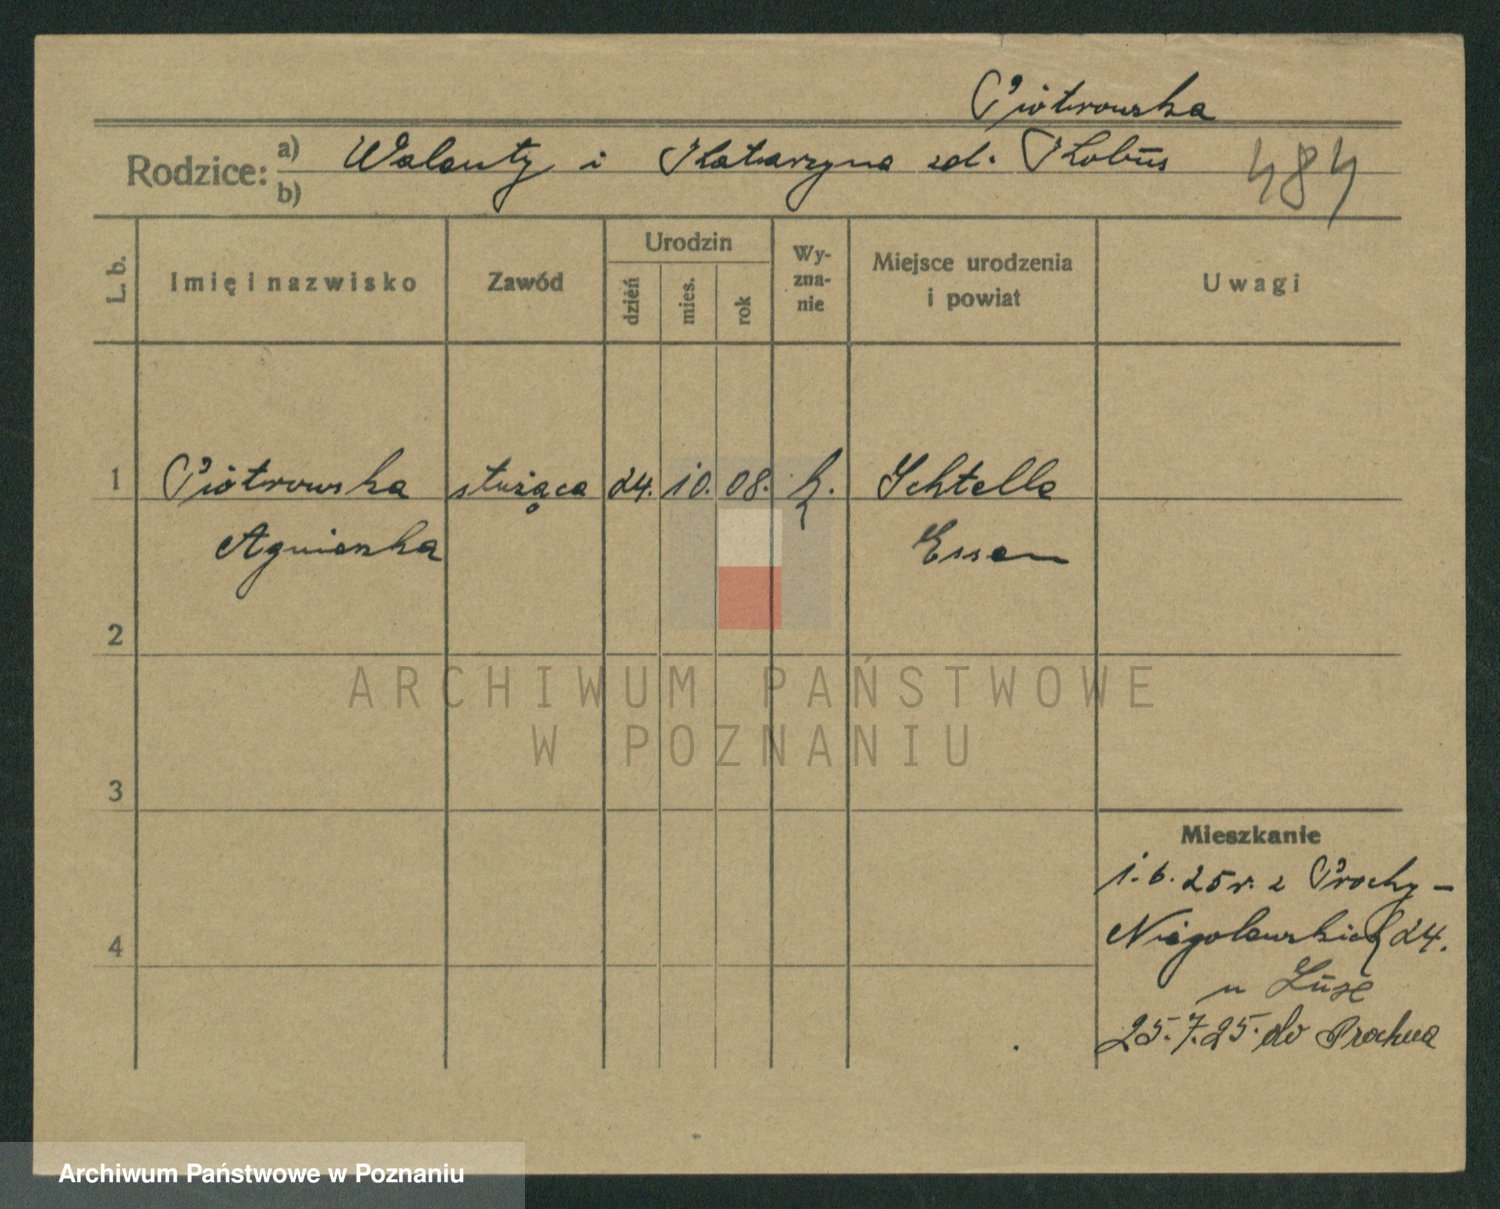 Piotrowska
Rodzice: a) Walenty i Katarzyna zd. Kobus
b)
484
L. b.
Imię i nazwisko
Zawód
Urodzin
dzień
mies.
rok
Wy-
zna-
nie
Miejsce urodzenia
i powiat
Uwagi
1 Piotrowska służąca 24. 10. 08. k.
Agnieszka Essen
2
ARCHIWUM PAŃSTWOWE
W POZNANIU
3
Mieszkanie
1.6.25 r. z Prochy -
4 Niegolewskich 24.
u
25.7.25. do
Archiwum Państwowe w Poznaniu